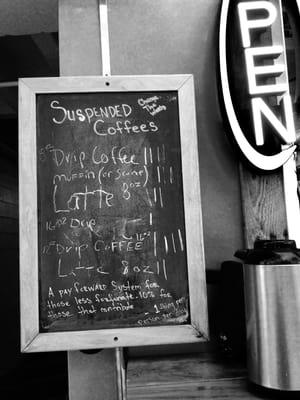 Suspended
Coffees
Change
The
World
8oz Drip Coffee ||||
muffin (or scone) |||
Latte 8oz ||
16oz Drip |
12oz DRIP COFFEE ||||
Latte 8oz ||
A pay forward System for
those less fortunate. 10% for
those that contribute
- 1 item per
person per
OPEN